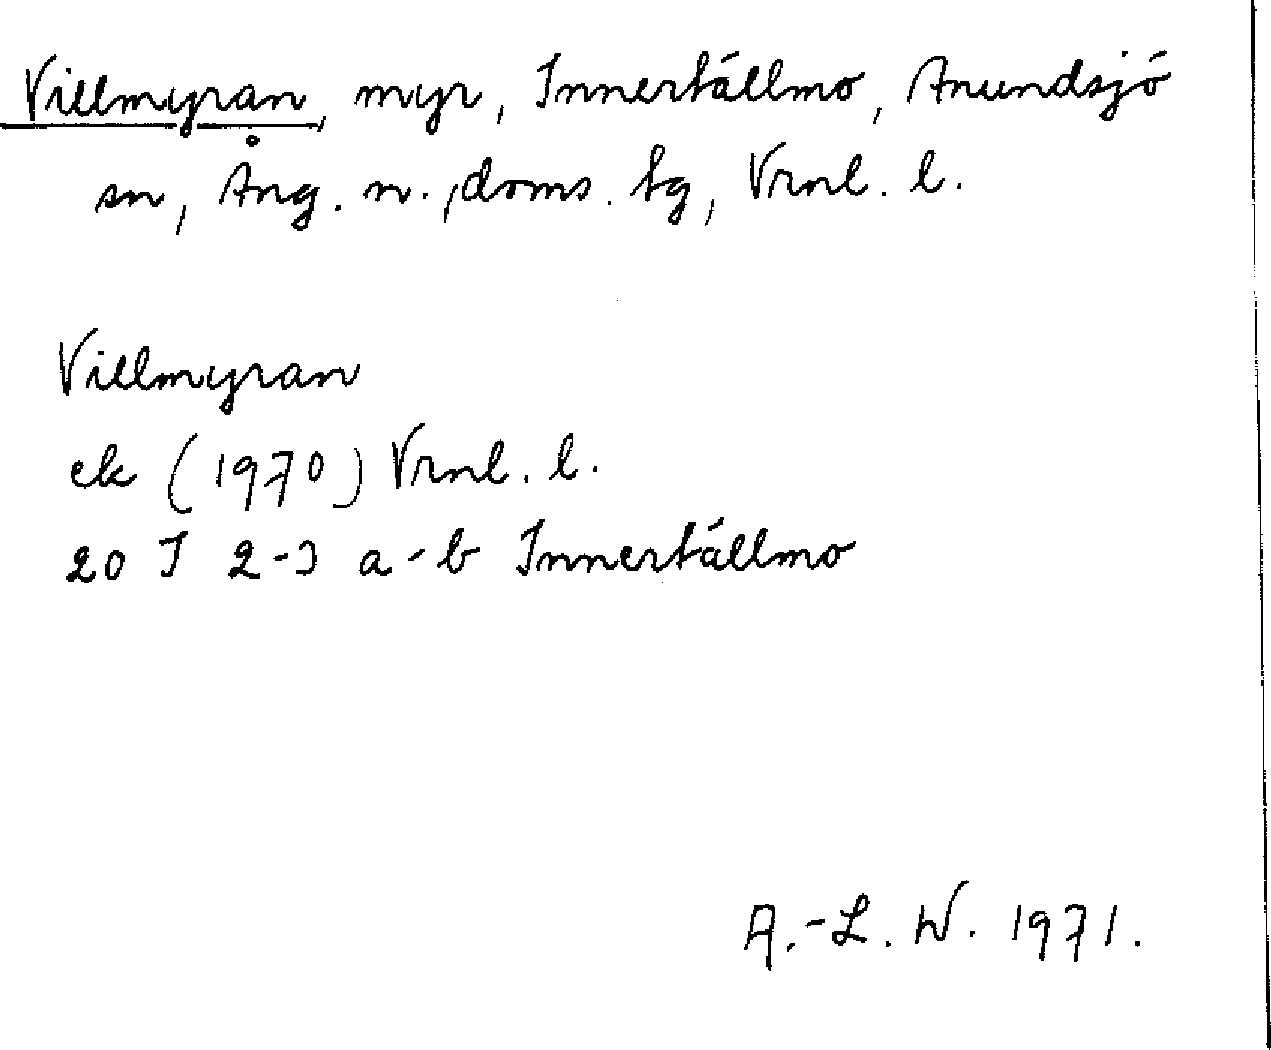 Villmyran, myr, Innertällmo, Anundsjö
sn, Ång. n., doms. tg, Vrnl. l.
Villmyran
ek (1970) Vrnl. l.
20 I 2-3 a-b Innertällmo
A.-L. W. 1971.